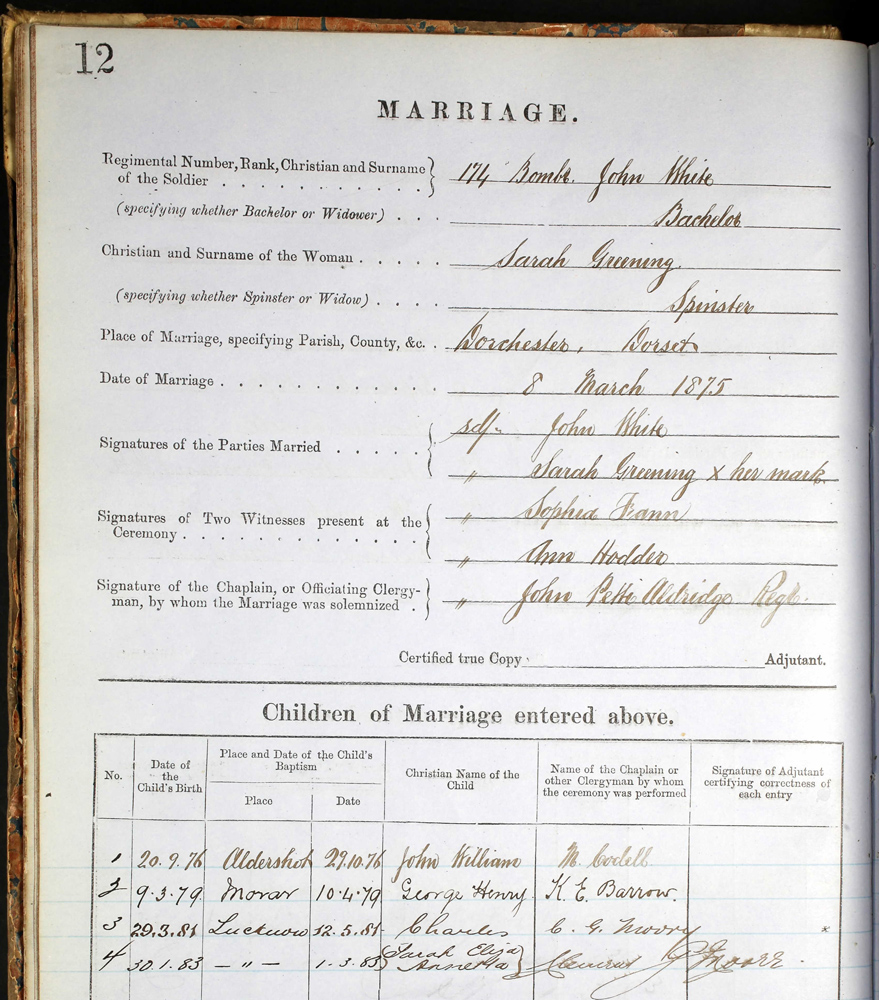 12
MARRIAGE.
Regimental Number, Rank, Christian and Surname of the Soldier . . . . . . . . . . . 174 Bombr. John White
(specifying whether Bachelor or Widower) . . . Bachelor
Christian and Surname of the Woman . . . . . Sarah Greening.
(specifying whether Spinster or Widow) . . . . Spinster
Place of Marriage, specifying Parish, County, &c. . Dorchester, Dorset
Date of Marriage . . . . . . . . . . . . 8 March 1875
Signatures of the Parties Married . . . . . sd/- John White
" Sarah Greening X her mark.
Signatures of Two Witnesses present at the " Sophia Fann
Ceremony . . . . . . . . . . . . . " Ann Hodder
Signature of the Chaplain, or Officiating Clergy-
man, by whom the Marriage was solemnized . " John Aldridge Regr.
Certified true Copy Adjutant.
Children of Marriage entered above.
No. Date of the Child's Birth Place and Date of the Child's Baptism Place Date Christian Name of the Child Name of the Chaplain or other Clergyman by whom the ceremony was performed Signature of Adjutant certifying correctness of each entry
1 20.9.76 Aldershot 29.10.76 John William M.
2 9.3.79 Morar 10.4.79 George Henry K. E. Barrow.
3 29.3.81 Lucknow 12.5.81 Charles C. G.
4 30.1.83 — " — 1.3.83 Sarah Eliza Annetta